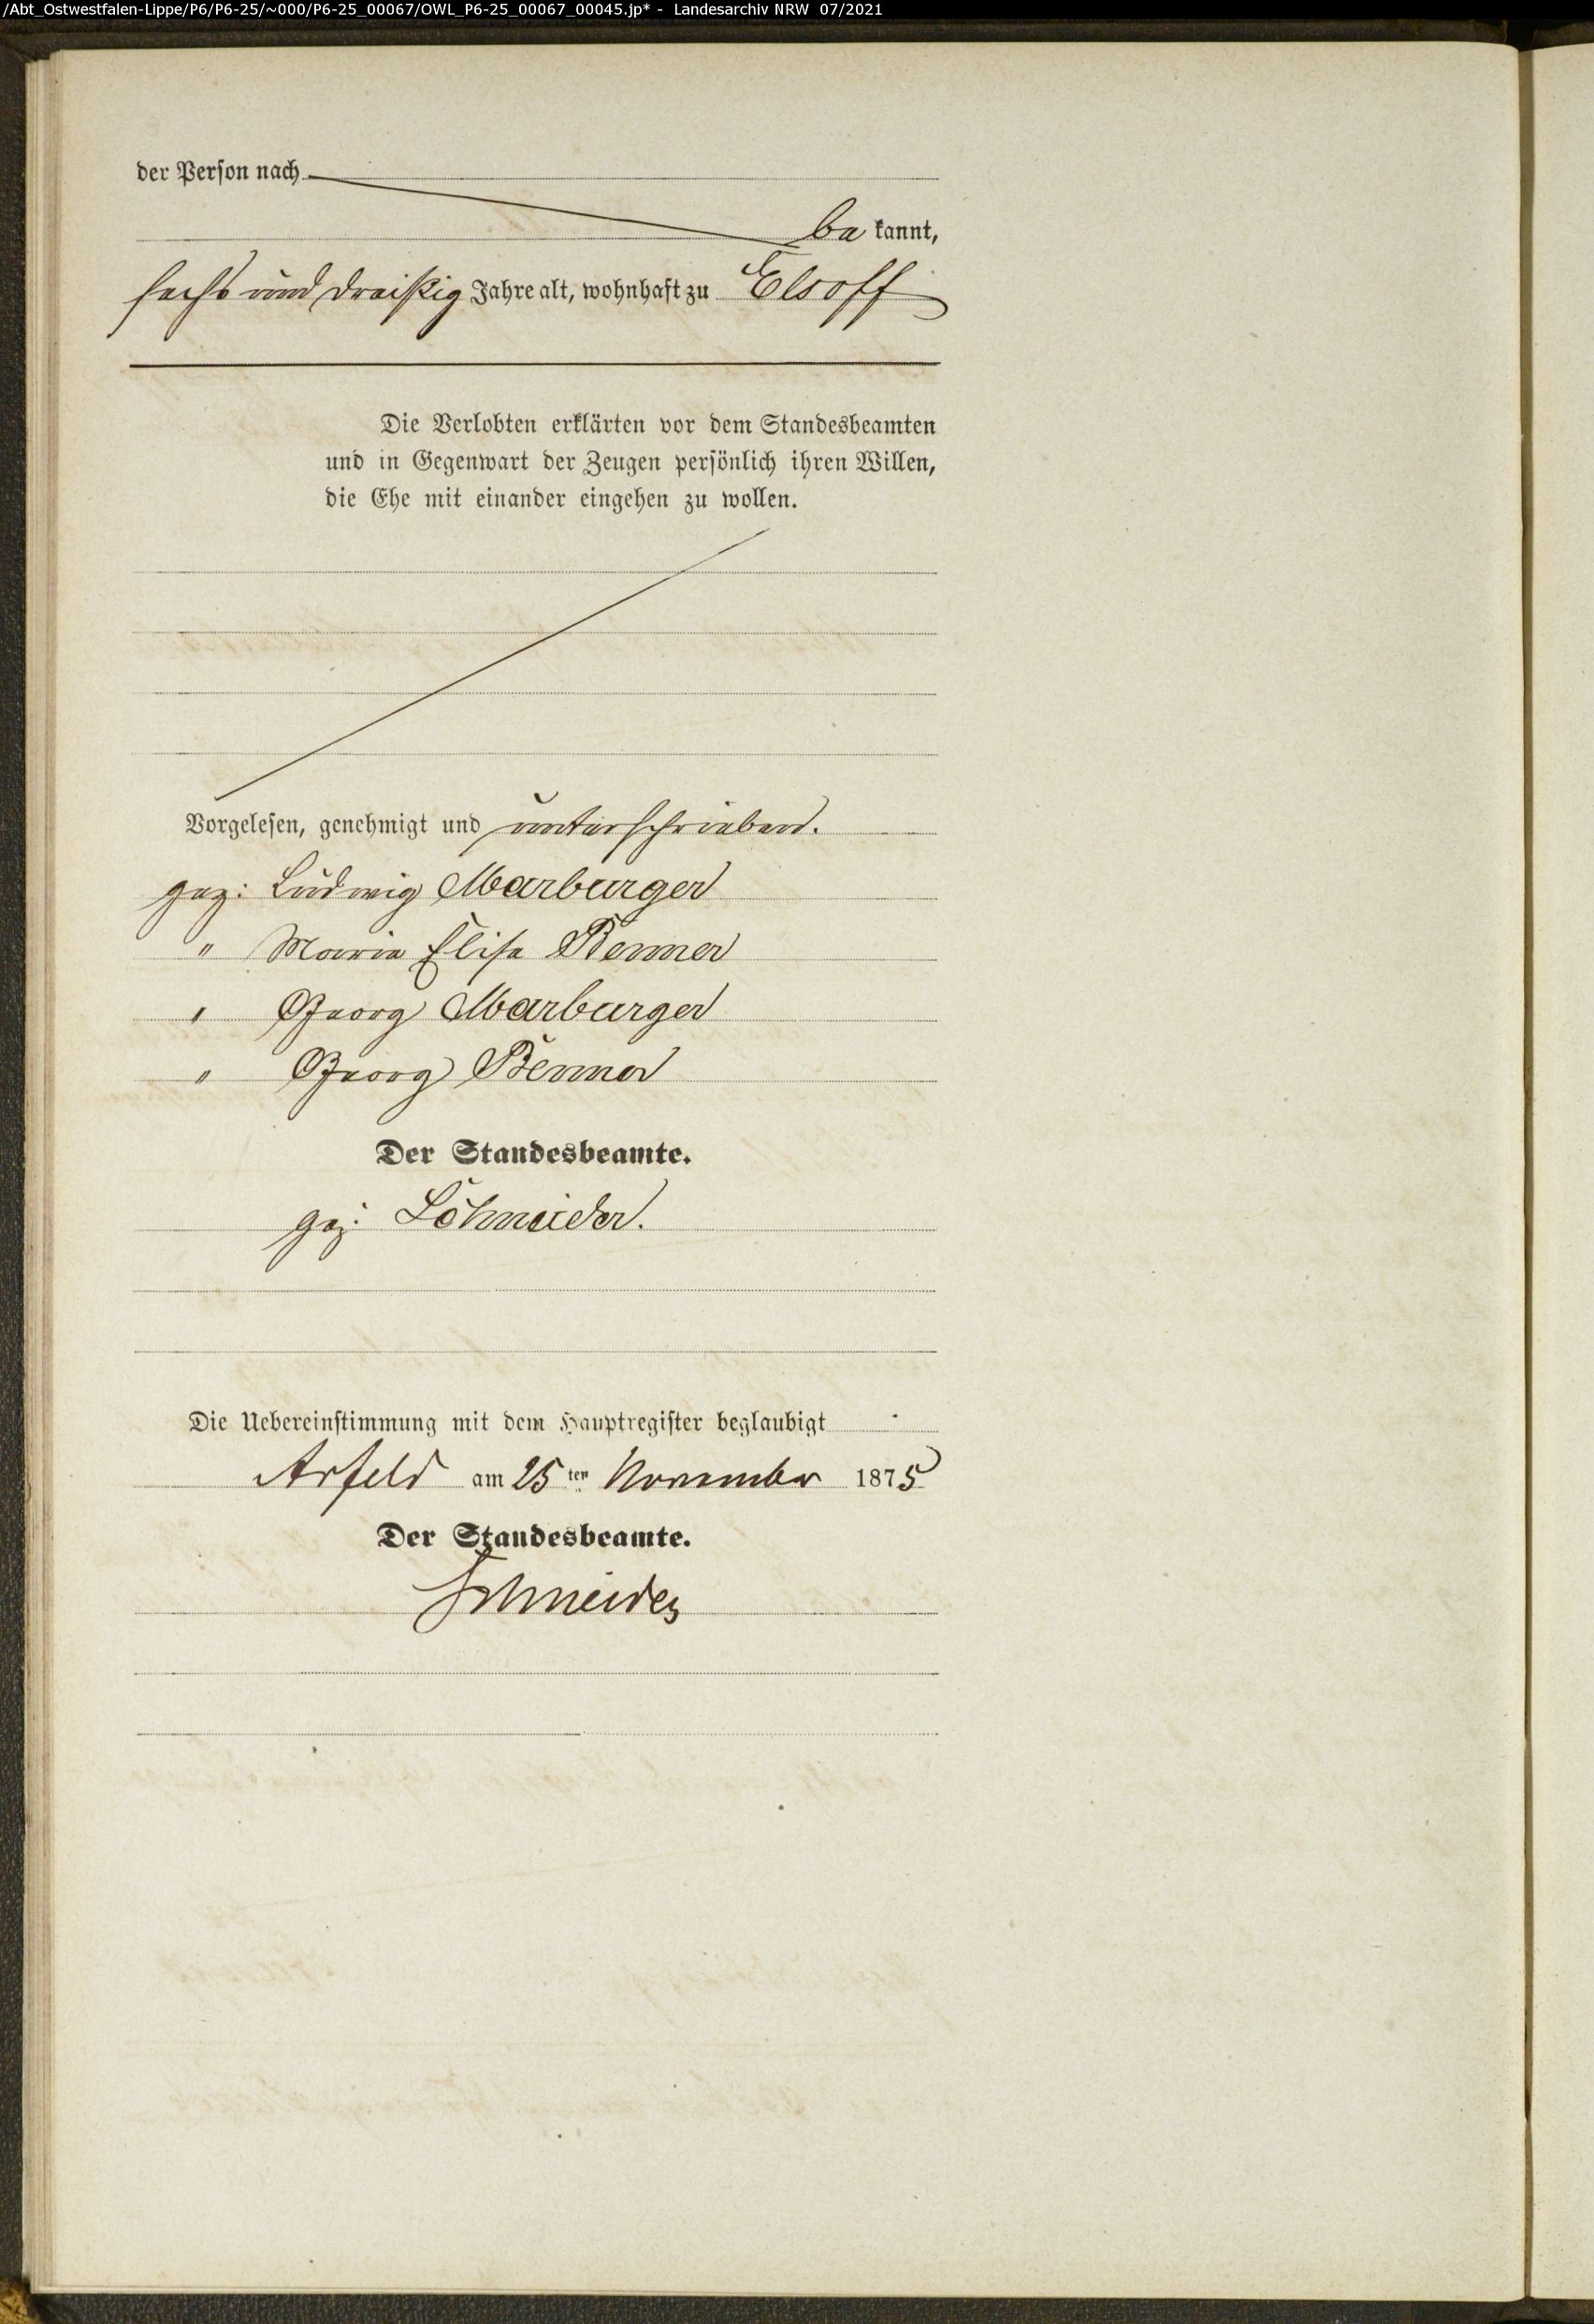 /Abt_Ostwestfalen-Lippe/P6/P6-25/~000/P6-25_00067/OWL_P6-25_00067_00045.jp* - Landesarchiv NRW 07/2021
der Person nach
be kannt,
sechs und dreißig Jahre alt, wohnhaft zu Elsoff
Die Verlobten erklärten vor dem Standesbeamten
und in Gegenwart der Zeugen persönlich ihren Willen,
die Ehe mit einander eingehen zu wollen.
Vorgelesen, genehmigt und unterschrieben.
gez: Ludwig Marburger
" Maria Elise Benner
" Georg Marburger
" Georg Benner
Der Standesbeamte.
gez: Schneider.
Die Uebereinstimmung mit dem Hauptregister beglaubigt
Arfeld am 25ten November 1875
Der Standesbeamte.
Schneider